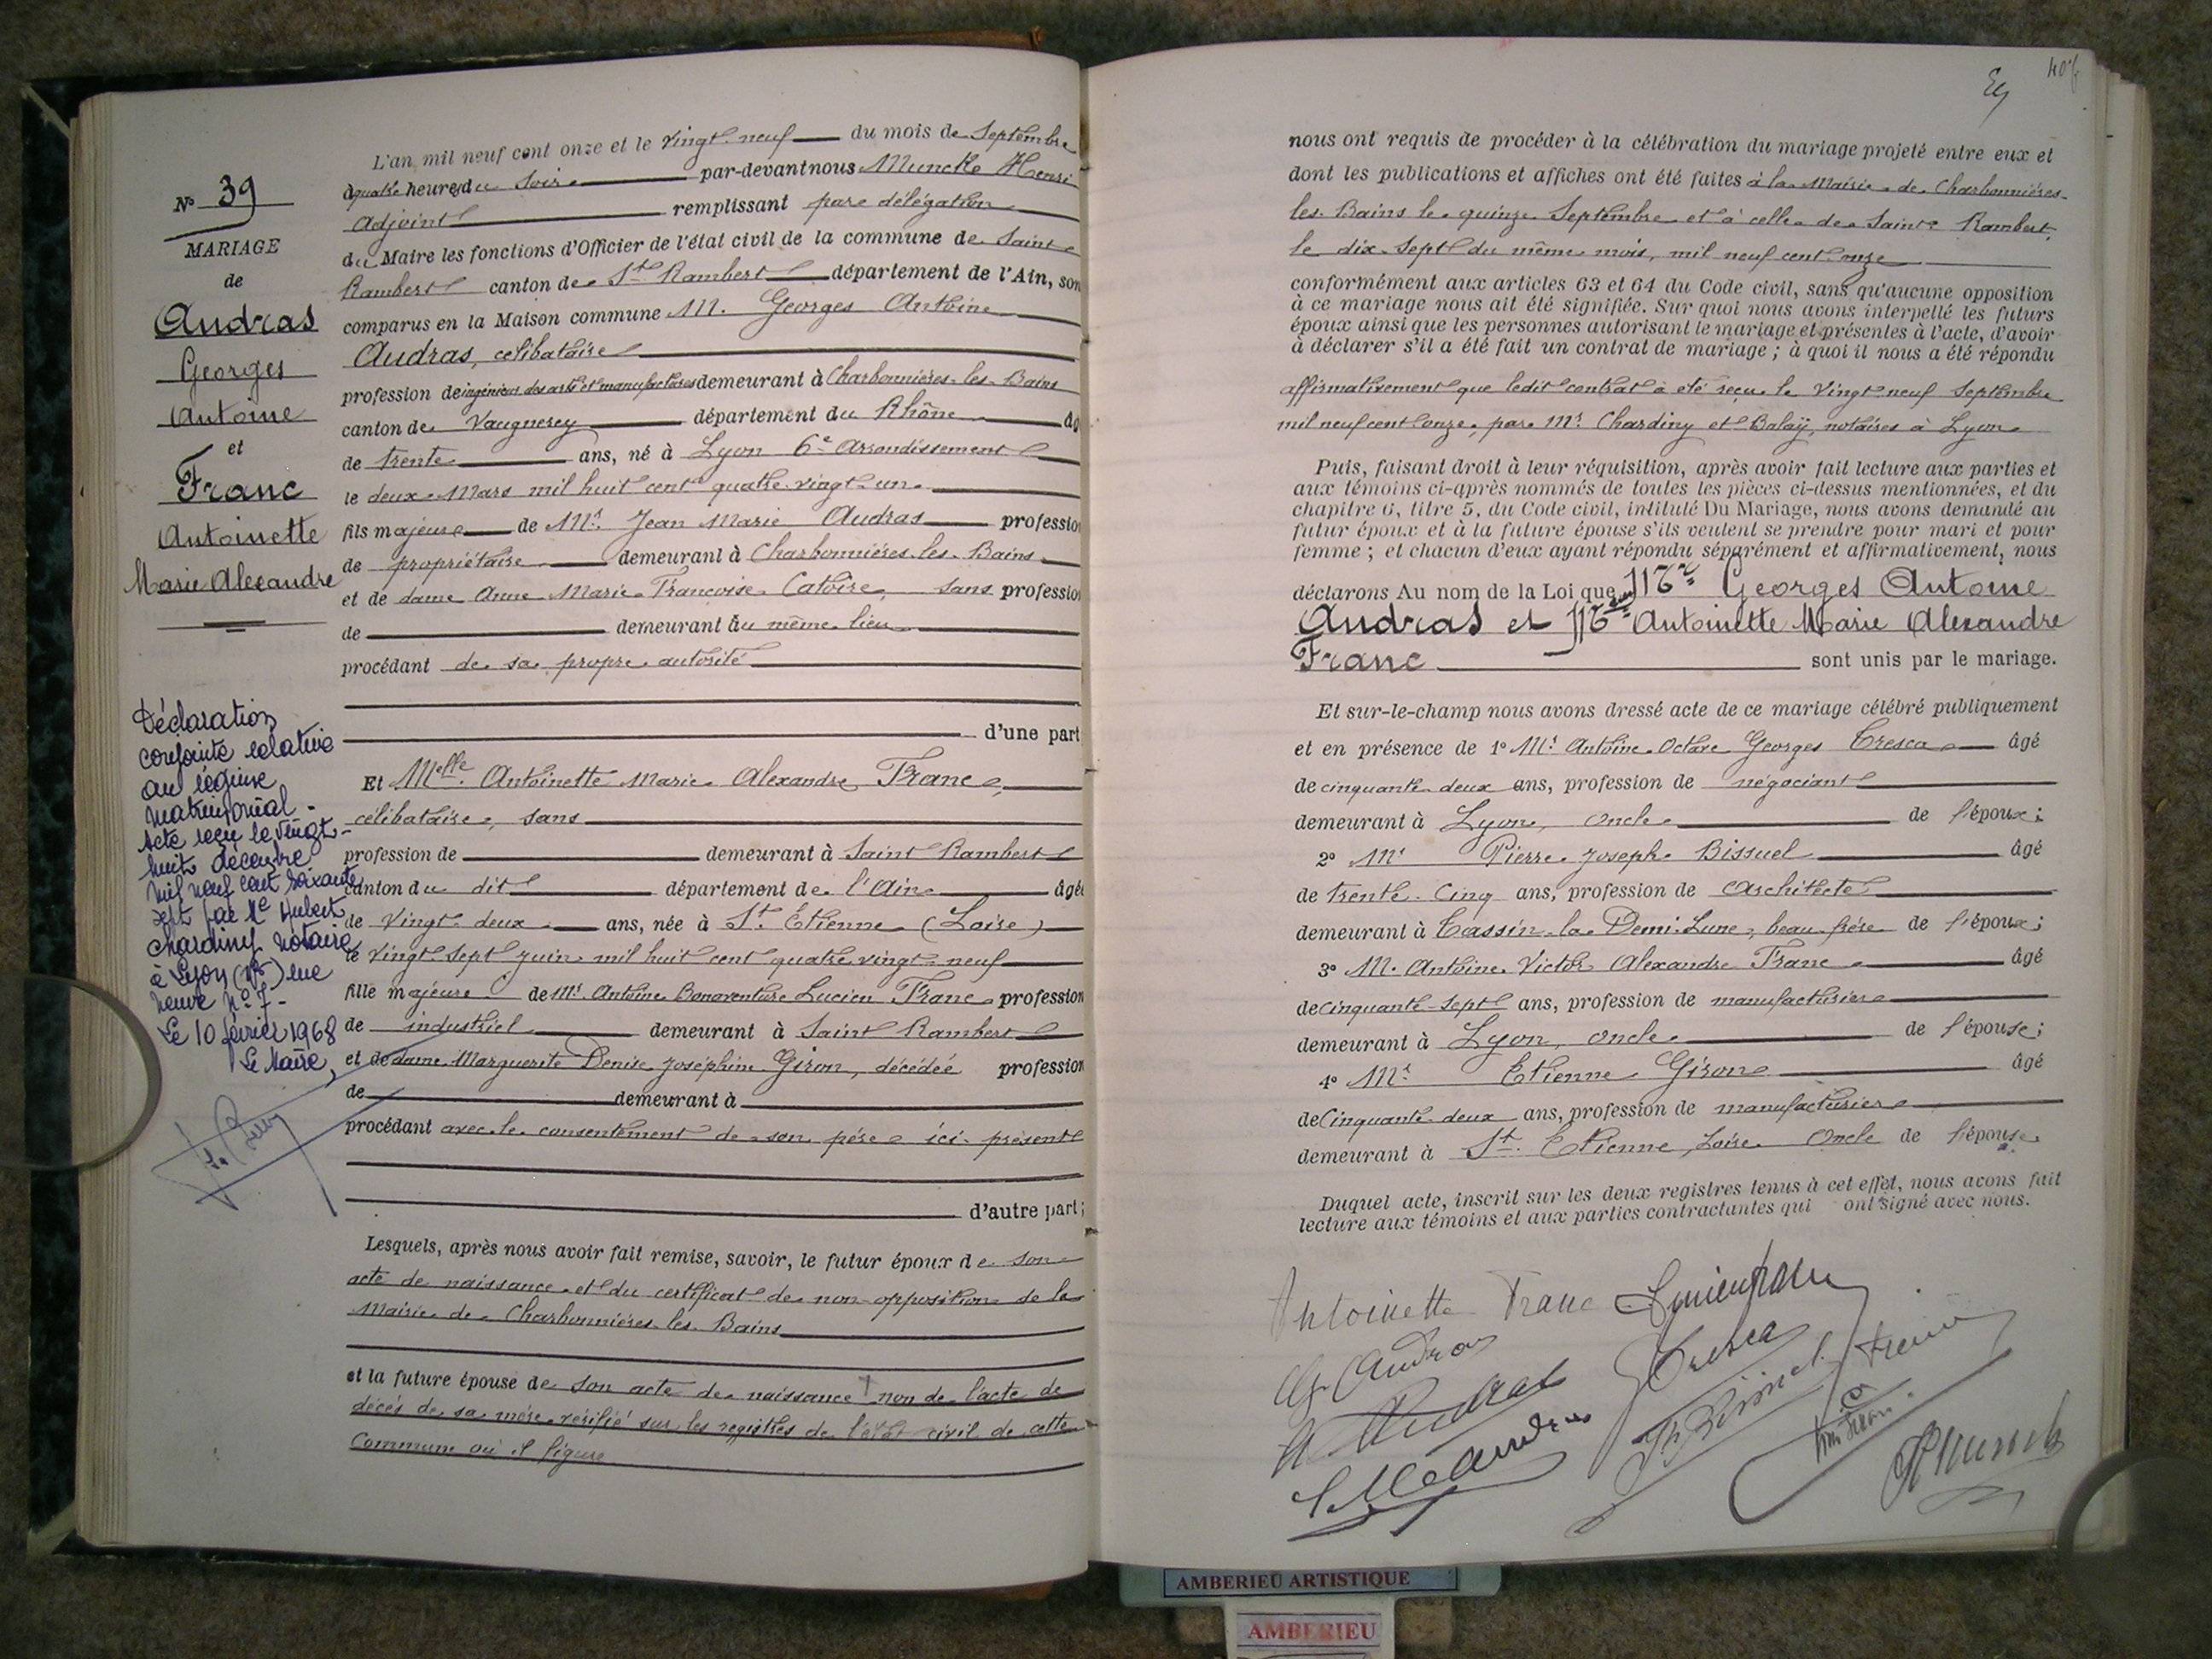 N° 39
MARIAGE
de
Audras
Georges
Antoine
et
Franc
Antoinette
Marie Alexandre
Déclaration
conjointe relative
au régime
matrimonial.
Acte reçu le vingt-
huit décembre
mil neuf cent soixante
sept par Me Hubert
Chardiny notaire
à Lyon rue
neuve n° 7-
Le 10 février 1968
Le Maire,
L'an mil neuf cent onze et le vingt-neuf du mois de Septembre
à quatre heures du soir par-devant nous Muncke Henri
adjoint remplissant par délégation
du Maire les fonctions d'Officier de l'état civil de la commune de Saint
Rambert canton de St Rambert département de l'Ain, son
comparus en la Maison commune M. Georges Antoine
Audras, celibataire
profession de ingénieur des arts et manufactures demeurant à Charbonnières-les-Bains
canton de Vaugneray département du Rhône âg
de trente ans, né à Lyon 6e arrondissement
le deux Mars mil huit cent quatre-vingt-un
fils majeur de Mr. Jean Marie Audras professio
de propriétaire demeurant à Charbonnières-les-Bains
et de dame Anne Marie Francoise Catoire, sans professio
de demeurant au même lieu
procédant de sa propre autorité
d'une part
Et Melle. Antoinette Marie Alexandre Franc,
célibataire, sans
profession de demeurant à Saint Rambert
canton du dit département de l'Ain âgée
de vingt-deux ans, née à St. Etienne (Loire)
le vingt-sept juin mil huit cent quatre-vingt-neuf
fille majeure de Mr. Antoine Bonaventure Lucien Franc profession
de industriel demeurant à Saint Rambert
et de dame Marguerite Denise Joséphine Giron, décédée profession
de demeurant à
procédant avec le consentement de son père ici présent
d'autre part;
Lesquels, après nous avoir fait remise, savoir, le futur époux de son
acte de naissance et du certificat de non-opposition de la
Mairie de Charbonnières-les-Bains
et la future épouse de son acte de naissance non de l'acte de
décès de sa mère vérifié sur les registres de l'état civil de cette
Commune où il figure
nous ont requis de procéder à la célébration du mariage projeté entre eux et
dont les publications et affiches ont été faites à la Mairie de Charbonnières-
les-Bains le quinze Septembre et à celle de Saint Rambert,
le dix-sept du même mois, mil neuf cent onze
conformément aux articles 63 et 64 du Code civil, sans qu'aucune opposition
à ce mariage nous ait été signifiée. Sur quoi nous avons interpellé les futurs
époux ainsi que les personnes autorisant le mariage et présentes à l'acte, d'avoir
à déclarer s'il a été fait un contrat de mariage ; à quoi il nous a été répondu
affirmativement que ledit contrat a été reçu le vingt-neuf Septembre
mil neuf cent onze, par Mr. Chardiny et Balaÿ, notaires à Lyon
Puis, faisant droit à leur réquisition, après avoir fait lecture aux parties et
aux témoins ci-après nommés de toutes les pièces ci-dessus mentionnées, et du
chapitre 6, titre 5, du Code civil, intitulé Du Mariage, nous avons demandé au
futur époux et à la future épouse s'ils veulent se prendre pour mari et pour
femme ; et chacun d'eux ayant répondu séparément et affirmativement, nous
déclarons Au nom de la Loi que Mr. Georges Antoine
Audras et Melle Antoinette Marie Alexandre
Franc sont unis par le mariage.
Et sur-le-champ nous avons dressé acte de ce mariage célébré publiquement
et en présence de 1° Mr. Antoine Octave Georges Tresca âgé
de cinquante-deux ans, profession de négociant
demeurant à Lyon, oncle de l'époux;
2° Mr Pierre Joseph Bissuel âgé
de trente-cinq ans, profession de Architecte
demeurant à Tassin-la-Demi-Lune, beau-frère de l'époux;
3° M. Antoine Victor Alexandre Franc âgé
de cinquante-sept ans, profession de manufacturier
demeurant à Lyon, oncle de l'épouse;
4° Mr. Etienne Giron âgé
de Cinquante-deux ans, profession de manufacturier
demeurant à St. Etienne, Loire Oncle de l'épouse
Duquel acte, inscrit sur les deux registres tenus à cet effet, nous avons fait
lecture aux témoins et aux parties contractantes qui ont signé avec nous.
Antoinette Franc
G Audras
Audras
Tresca
AMBERIEU ARTISTIQUE
AMBERIEU